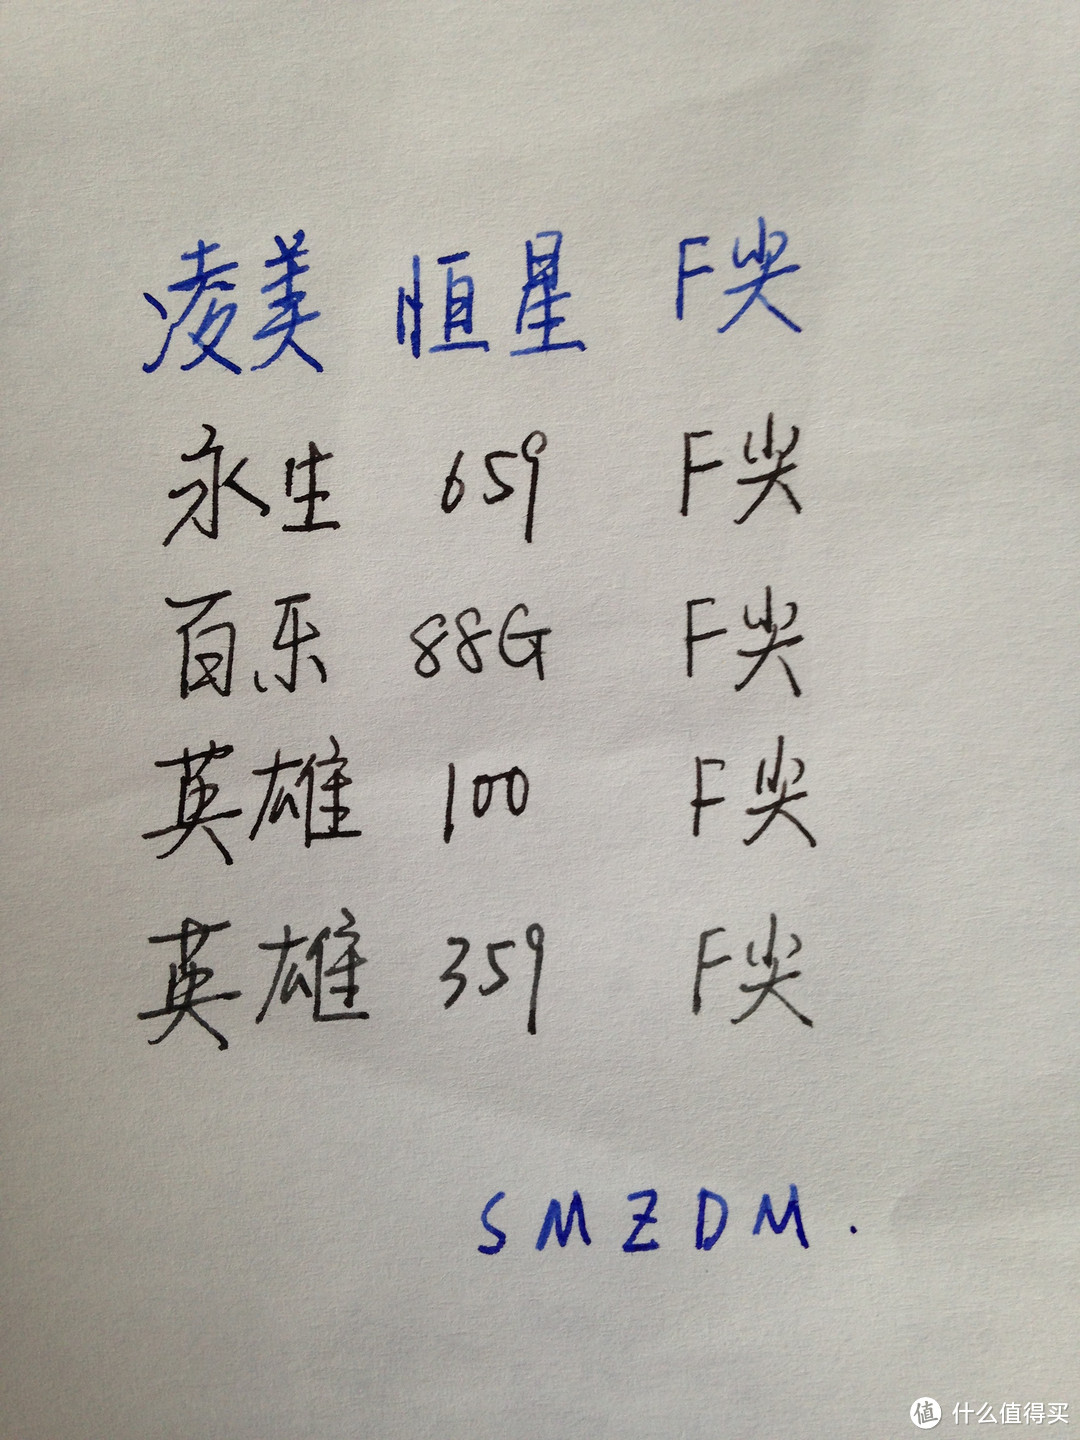 凌美 恒星 F尖
永生 659 F尖
百乐 88G F尖
英雄 100 F尖
英雄 359 F尖
SMZDM.
值 什么值得买